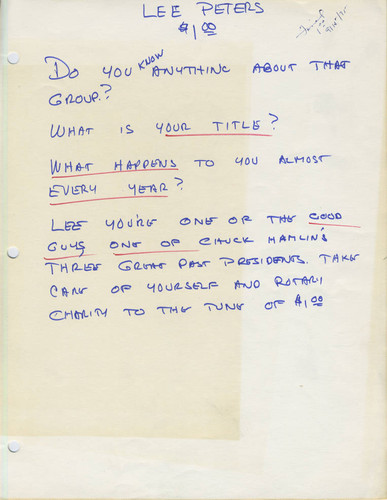 LEE PETERS
$1.00
DO YOU KNOW ANYTHING ABOUT THAT
GROUP?
WHAT IS YOUR TITLE?
WHAT HAPPENS TO YOU ALMOST
EVERY YEAR?
LEE YOU'RE ONE OF THE GOOD
GUYS ONE OF CHUCK HAMLIN'S
THREE GREAT PAST PRESIDENTS. TAKE
CARE OF YOURSELF AND ROTARY
CHARITY TO THE TUNE OF $1.00